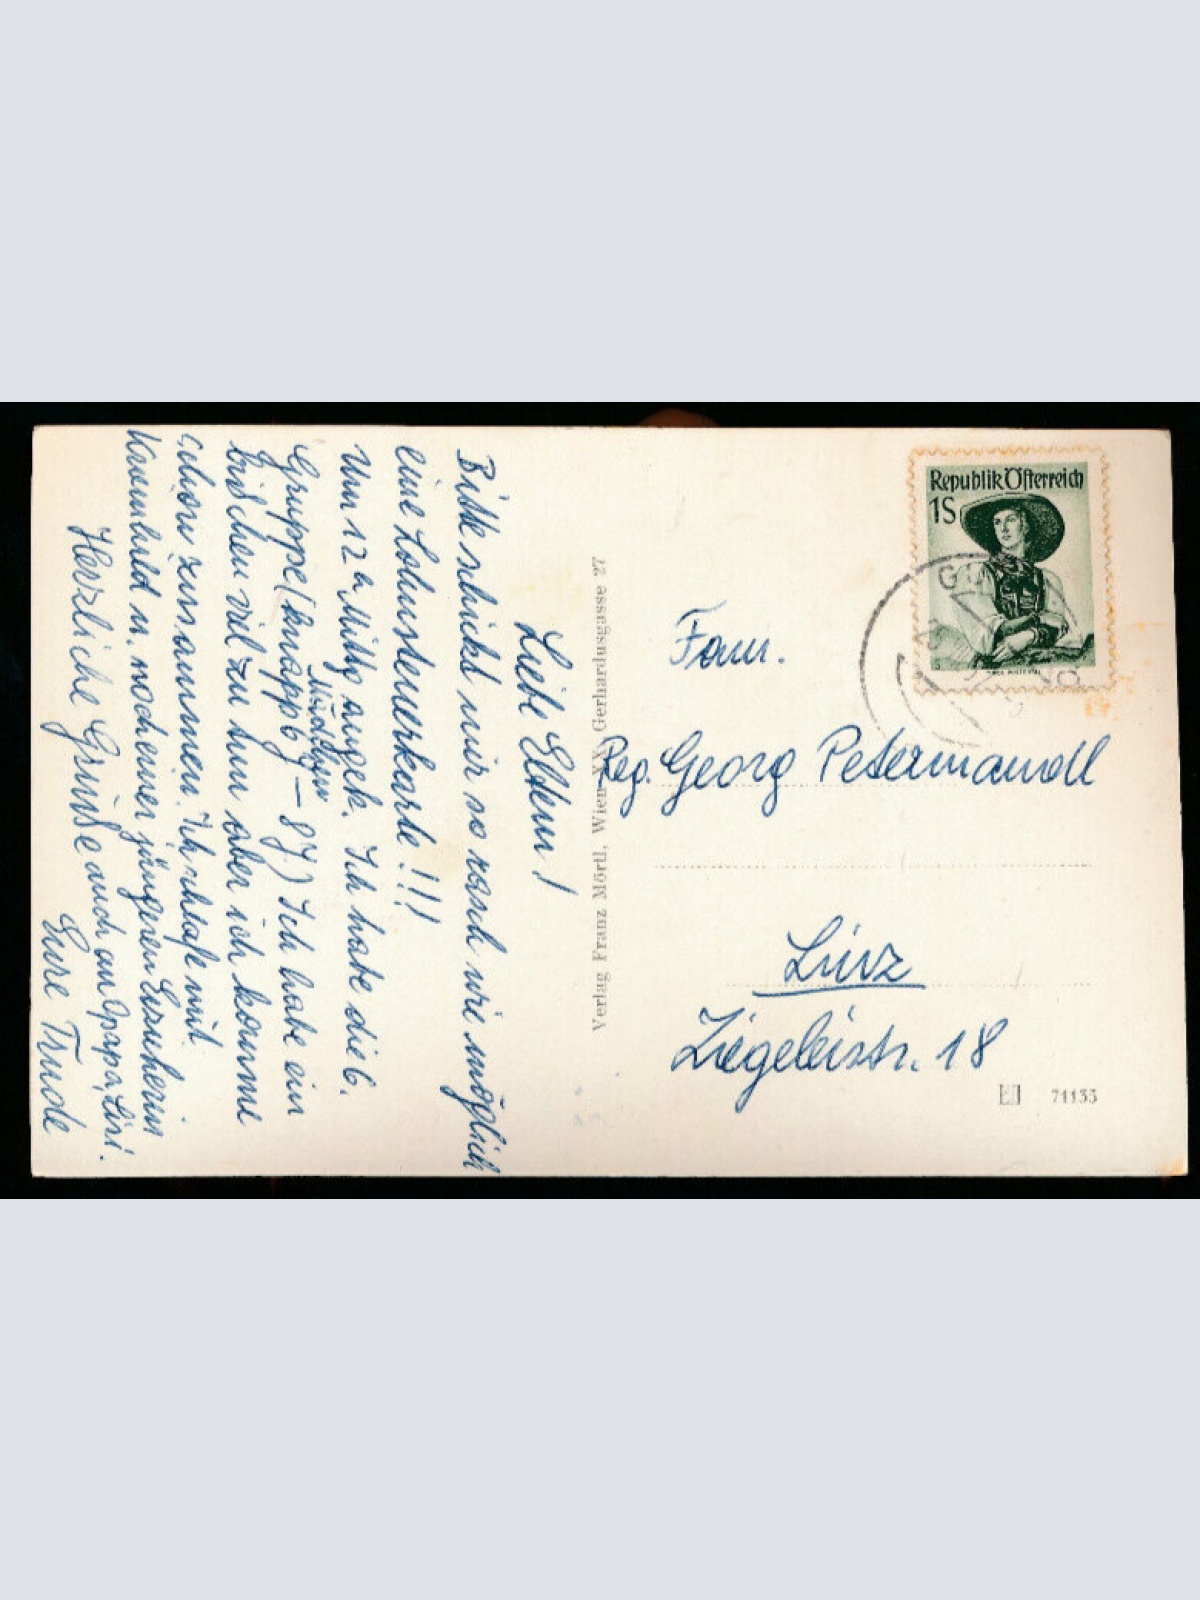 Liebe Eltern!
Bitte schickt mir so rasch wie möglich
eine Lohnsteuerkarte!!!
Um 12 h Mittg angek. Ich habe die 6.
Gruppe (knapp 6 J – 8 J) Ich habe ein
Mädchen
bißchen viel zu tun aber ich komme
schon zusammen. Ich schlafe mit
u. noch einer jüngeren Erzieherin
Herzliche Grüße auch an Opapa, Lisi.
Eure Trude
Verlag Franz Mörtl, Wien XX, Gerhardusgasse 27
Republik Österreich
1S
Fam.
Reg. Georg Petermandl
Linz
Ziegeleistr. 18
71133